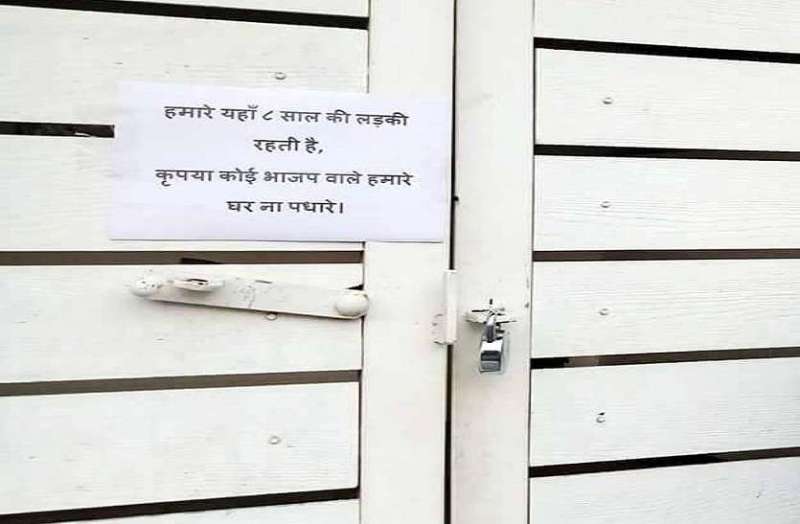 हमारे यहाँ ८ साल की लड़की
रहती है,
कृपया कोई भाजप वाले हमारे
घर ना पधारे।